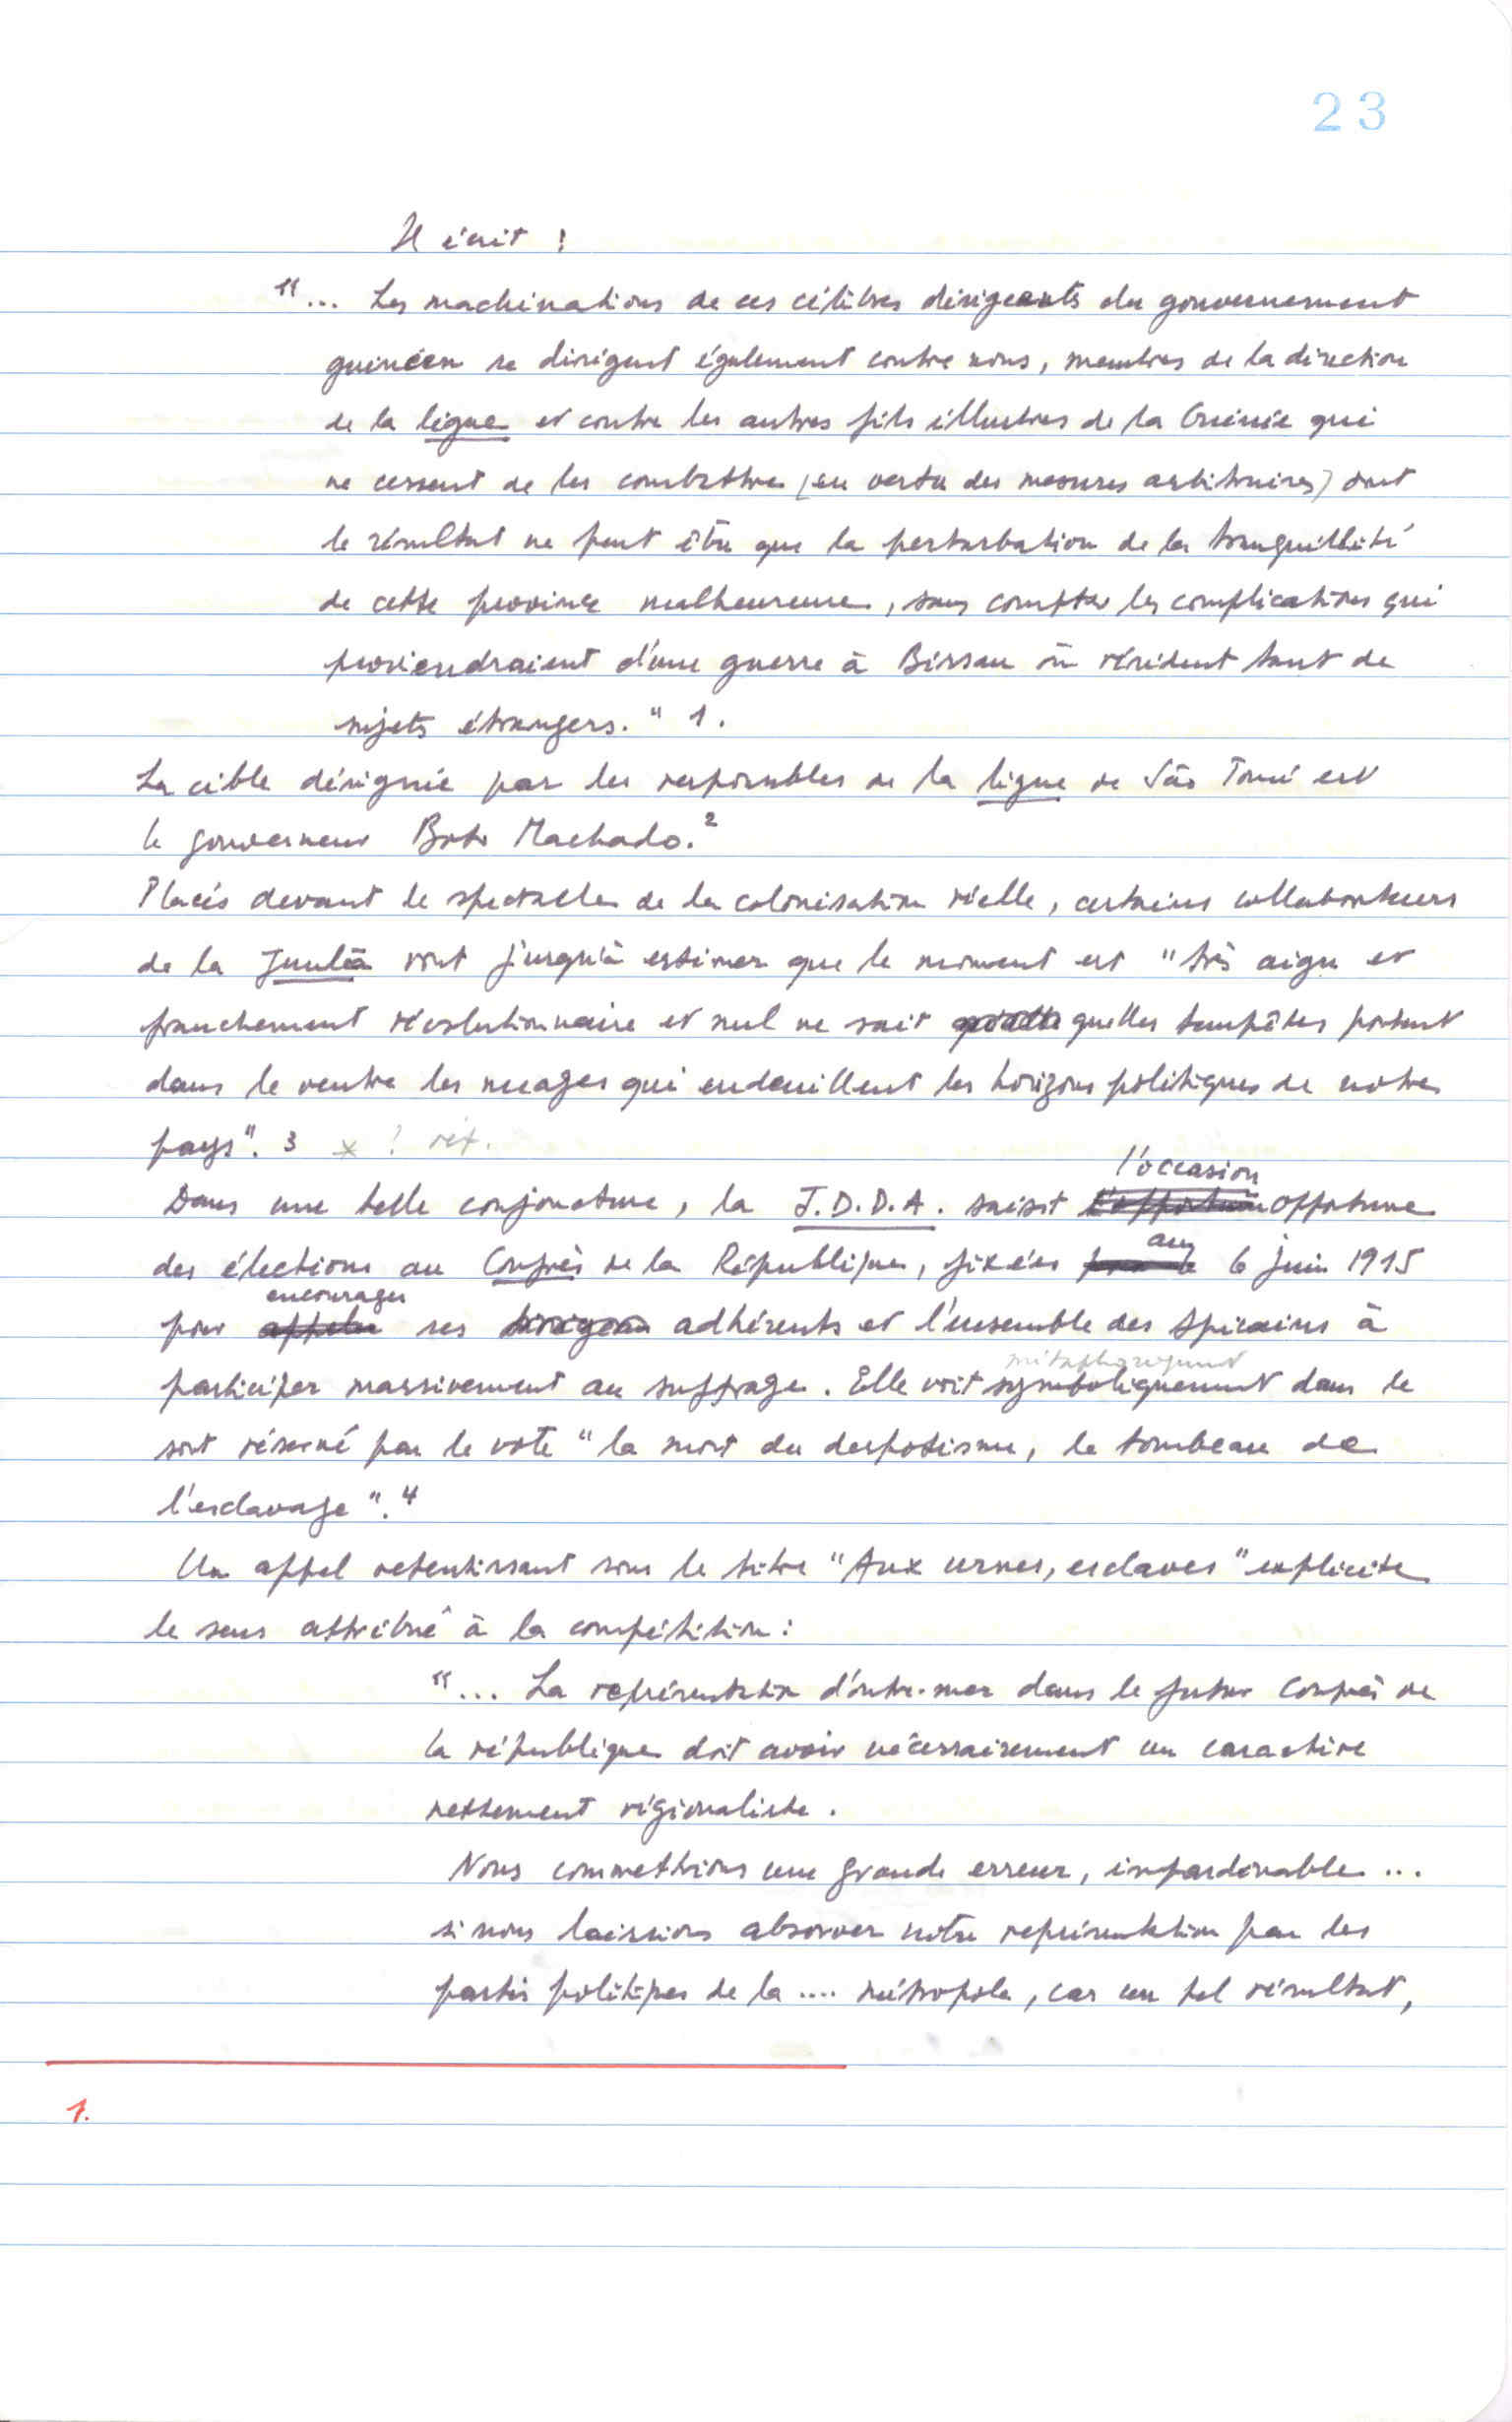 23
Il écrit :
"... Les machinations de ces célèbres dirigeants du gouvernement
guinéen se dirigent également contre nous, membres de la direction
de la ligue et contre les autres fils illustres de la Guinée qui
ne cessent de les combattre (en vertu des mesures arbitraires) dont
le résultat ne peut être que la perturbation de la tranquillité
de cette province malheureuse, sans compter les complications qui
proviendraient d'une guerre à Bissau où résident tant de
sujets étrangers." 1.
La cible désignée par les responsables de la ligue de São Tomé est
le gouverneur Boto Machado.2
Placés devant le spectacle de la colonisation réelle, certains collaborateurs
de la Junta vont jusqu'à estimer que le moment est "très aigu et
franchement révolutionnaire et nul ne sait quelles tempêtes portent
dans le ventre les nuages qui endeuillent les horizons politiques de notre
pays". 3 x ? réf.
l'occasion
Dans une telle conjoncture, la J.D.D.A. saisit opportune
au
des élections au Congrès de la République, fixées 6 juin 1915
encourager
pour appeler ses adhérents et l'ensemble des Africains à
métaphoriquement
participer massivement au suffrage. Elle voit symboliquement dans le
sort réservé par le vote "la mort du despotisme, le tombeau de
l'esclavage".4
Un appel retentissant sous le titre "Aux urnes, esclaves" explicite
le sens attribué à la compétition :
"... La représentation d'outre-mer dans le futur Congrès de
la république doit avoir nécessairement un caractère
nettement régionaliste.
Nous commettrions une grande erreur, impardonable ...
si nous laissions absorver notre représentation par les
partis politiques de la .... métropole, car un tel résultat,
1.